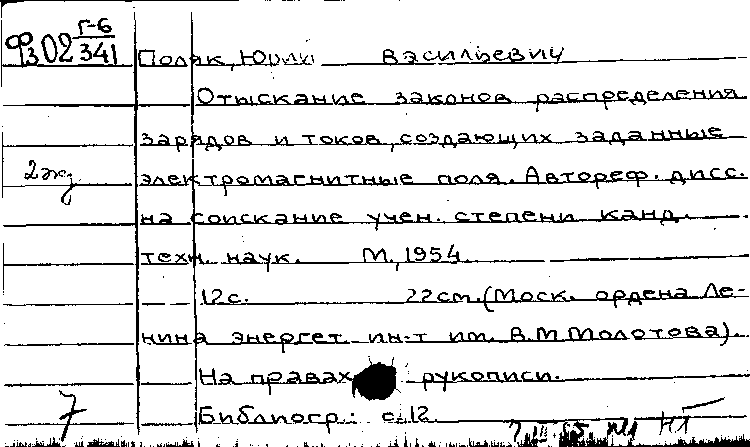 Г-6
Ф302 341
Поляк, Юрий Васильевич
Отыскание законов распределения
зарядов и токов, создающих заданные
2 экз
электромагнитные поля. Автореф. дисс.
на соискание учен. степени канд.
техн. наук. М., 1954
12 с. 22 см. (Моск. ордена Ле-
нина энергет. ин-т им. В.М Молотова).
На правах рукописи.
7
Библиогр.: с. 12
НГ